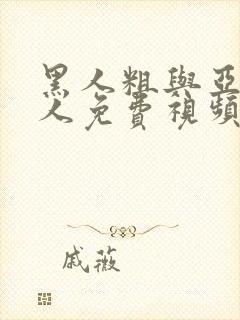 黑人粗與亞
人免費視頻
戚薇